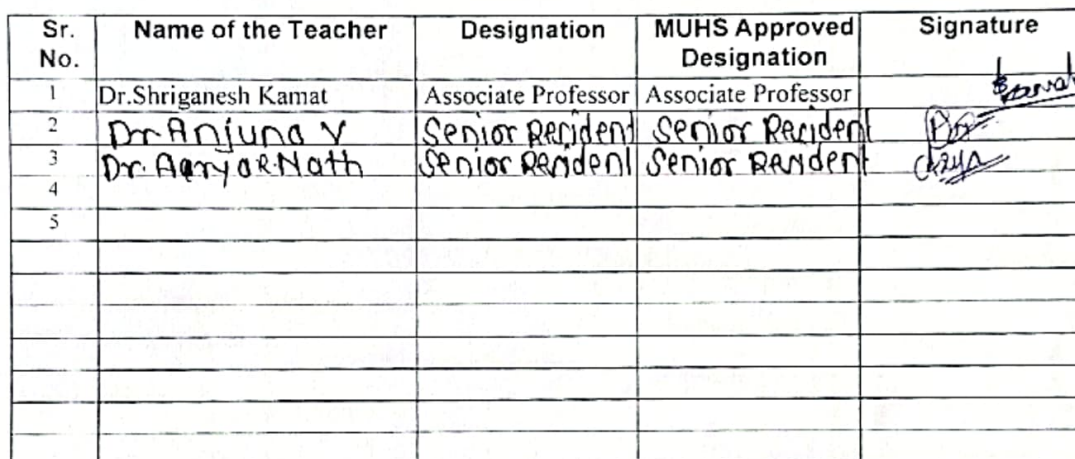 Sr. No. Name of the Teacher Designation MUHS Approved Designation Signature
1 Dr.Shriganesh Kamat Associate Professor Associate Professor
2 Dr Anjuna V Senior Resident Senior Resident
3 Dr. Aarya R Nath Senior Resident Senior Resident
4
5